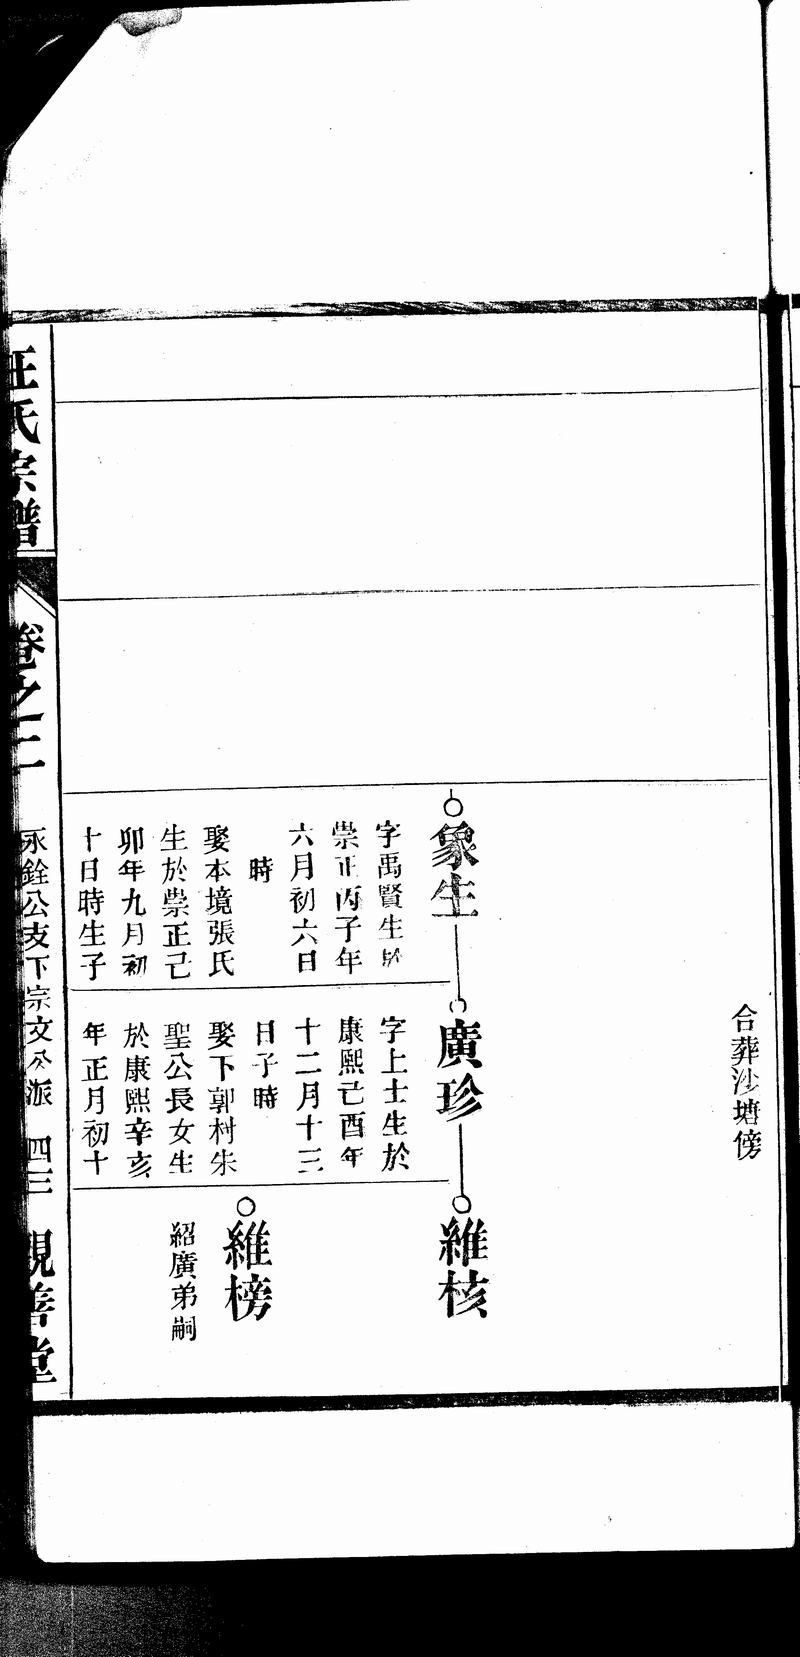 合葬沙塘傍
象生
字禹賢生於
崇正丙子年
六月初六日
時
娶本境張氏
生於崇正己
卯年九月初
十日時生子
廣珍
字上士生於
康熙己酉年
十二月十三
日子時
娶下郭村朱
聖公長女生
於康熙辛亥
年正月初十
維核
維榜
紹廣弟嗣
汪氏宗譜
卷之二
永銓公支下宗文公派
四三
親善堂